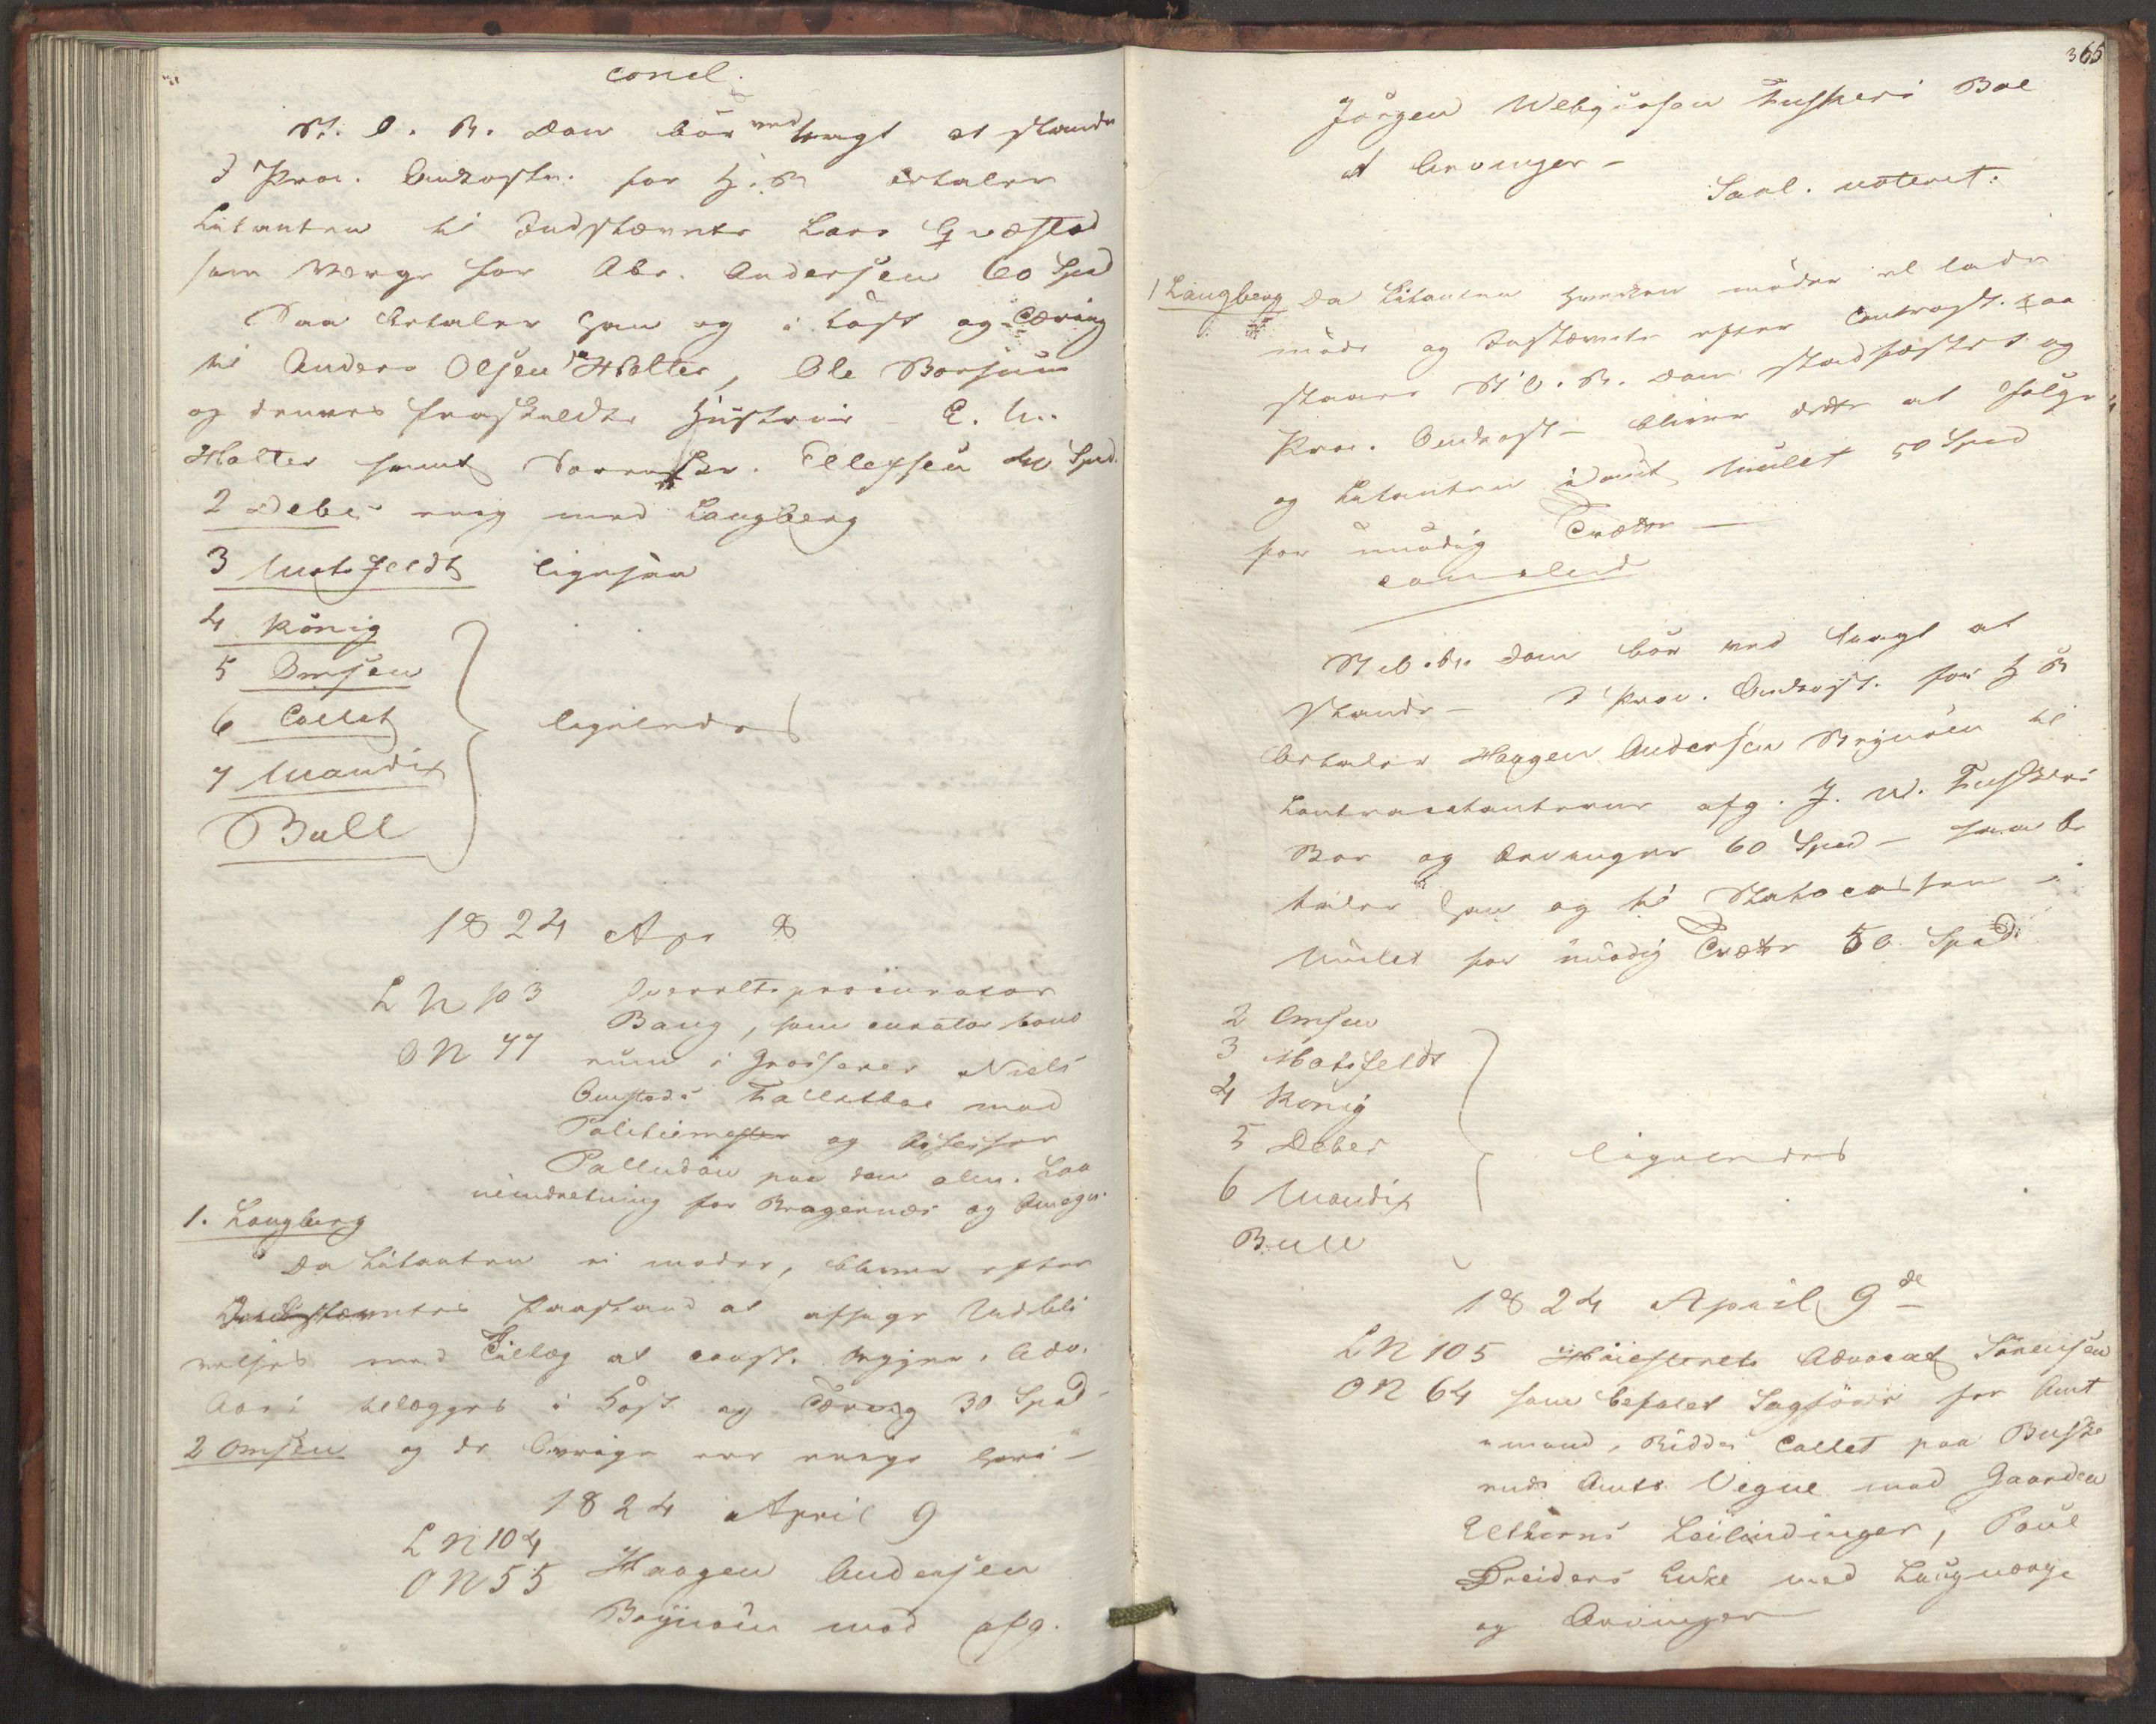 concl.
St. O. R. Dom bør ved Magt at stande
I Proc. Omkostn. for H. R betaler
Citanten til Indstævnte Lars Qvæstad
som Værge for Abr. Andersen 60 Spd
Saa betaler han og i Kost og Tæring
til Anders Olsen Holter, Ole Borsum
og dennes fraskildte Hustrue E. M.
Holter samt Sorenskr. Ellefsen 40 Spd.
2 Debes enig med Langberg
3 Motzfeldt ligesaa
4 König
5 Omsen
6 Collet
7 Mandix
Bull
ligeledes
1824 Apr 8
L N 103 Overretsprocurator
Bang, som curator bono
O N 77 rum i Grosserer Niels
Omsteds Fallitboe mod
Politiemester og Assessor
Palludan paa den alm. Laa
neindretning for Bragernæs og Omegn.
1. Langberg
Da Citanten ei møder, bliver efter
Indstævntes Paastand at afsige Udebli
velses med Tillæg at const. Regjer. Adv.
Aars tillægges i Kost og Tæring 30 Spd
2 Omsen og de Øvrige vare enige heri –
1824 April 9
L N 104
O N 55 Haagen Andersen
Brynøen mod afg.
365
Jørgen Webjørnsen Huskens Boe
et Arvinger –
Saal. noteret:
1 Langberg Da Citanten hverken møder el lader
møde og Instævnte efter Contrast. paa
staaer St. O. R. Dom stadfæstet og
Proc. Omkost – bliver dette at følge
og Citanten idømt Mulct 50 Spd
for unødig Trætte –
conclud
St. O. R. Dom bør ved Magt at
stande – I Proc. Omkost. for H R
betaler Haagen Andersen Brynøen til
Contracitanterne afg. J. W. Huskens
Boe og Arvinger 60 Spd – saa be
taler han og til Statscassen i
Mulct for unødig Trætte 50 Spd.
2 Omsen
3 Motzfeldt
4 König
5 Debes
6 Mandix
Bull
ligeledes
1824 April 9de
L N 105 Høiesterets Advocat Sørensen
O N 64 som befalet Sagfører for Amt
mand, Ridder Collet paa Buske
ruds Amts Vegne mod Gaarden
Leilændinger, Poul
Enke med Laugværge
og Arvinger